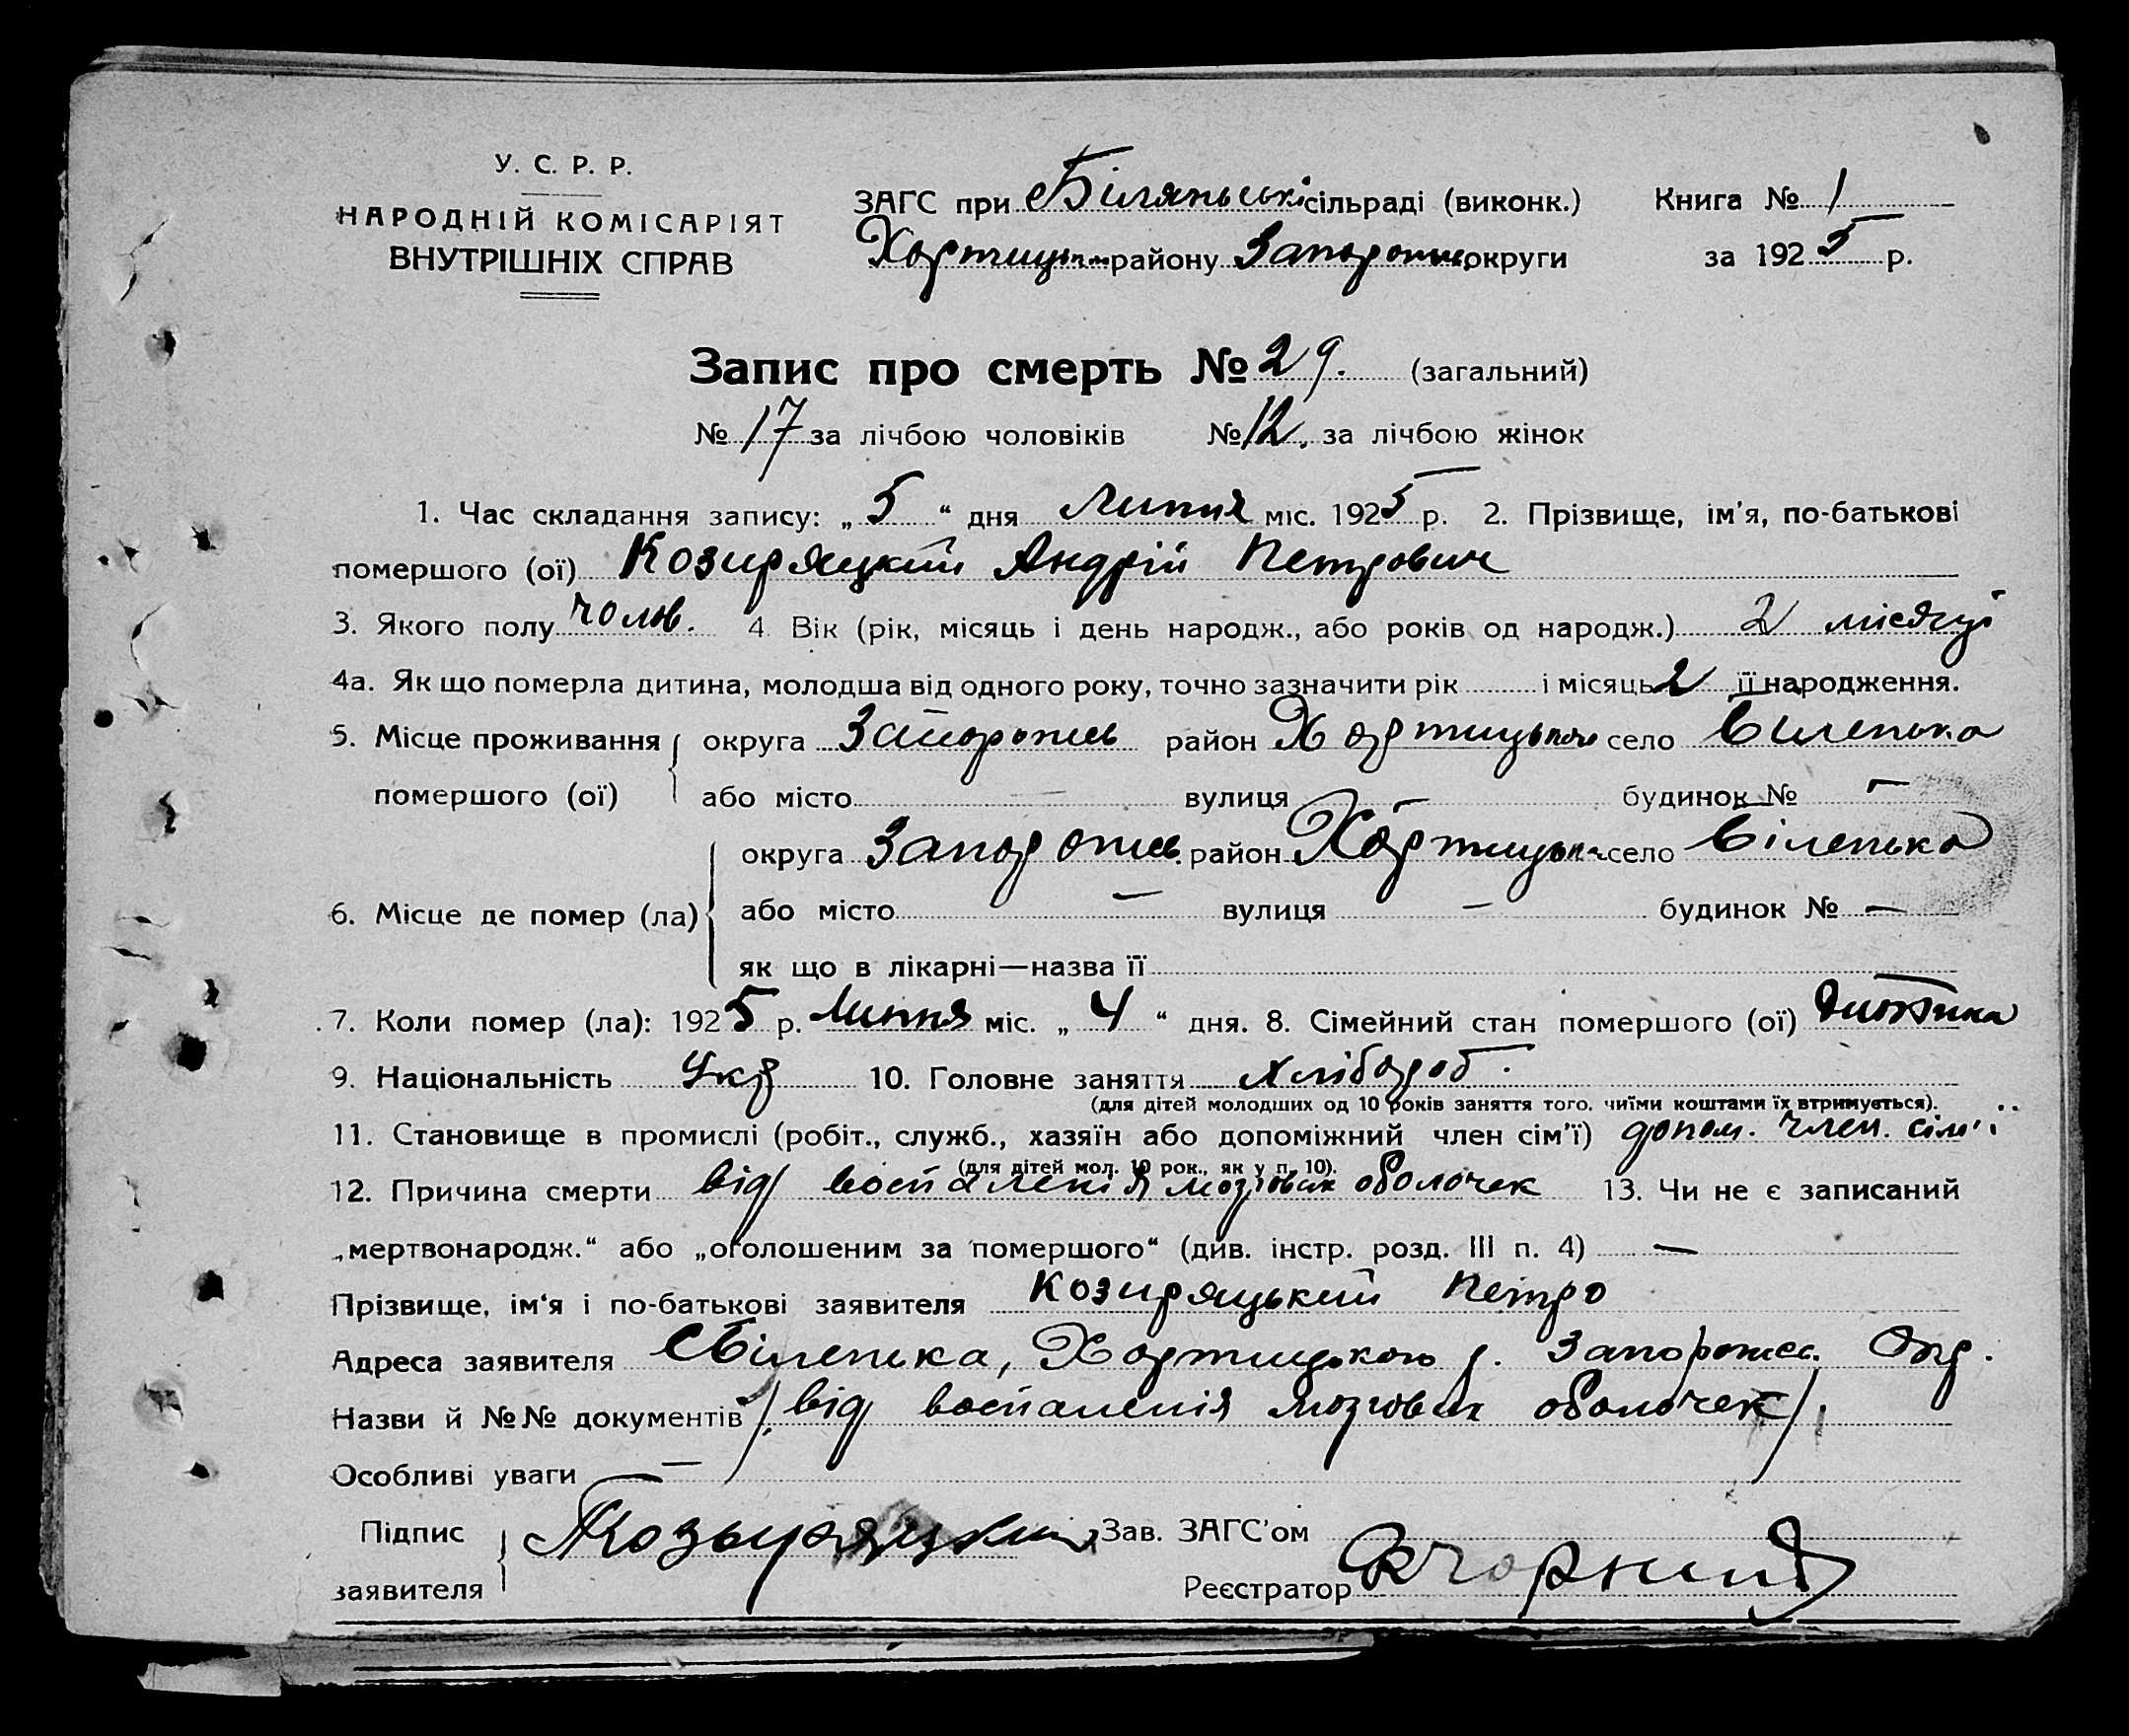 У. С. Р. Р.
НАРОДНІЙ КОМІСАРІЯТ
ВНУТРІШНІХ СПРАВ
ЗАГС при Біляньські сільраді (виконк.) Книга № 1
Хортицьк району Запорожськ округи за 1925 р.
Запис про смерть № 29. (загальний)
№ 17 за лічбою чоловіків № 12. за лічбою жінок
1. Час складання запису: „ 5 “ дня Липня міс. 1925 р. 2. Прізвище, ім'я, по-батькові
помершого (ої) Козиряцкий Андрій Петрович
3. Якого полу чолов. 4. Вік (рік, місяць і день народж., або років од народж.) 2 місяці
4а. Як що померла дитина, молодша від одного року, точно зазначити рік і місяць 2 її народження.
5. Місце проживання округа Запорожсь район Хортицького село Біленька
помершого (ої) або місто — вулиця — будинок № —
округа Запорожсь. район Хортицьк село Біленька
6. Місце де помер (ла) або місто — вулиця — будинок № —
як що в лікарні—назва її
7. Коли помер (ла): 1925 р. Липня міс. „ 4 “ дня. 8. Сімейний стан помершого (ої) дитина
9. Національність Укр 10. Головне заняття хлібороб.
(для дітей молодших од 10 років заняття того, чиїми коштами їх втримується).
11. Становище в промислі (робіт., служб., хазяїн або допоміжний член сім'ї) допом. член. сім'ї
(для дітей мол. 10 рок., як у п. 10).
12. Причина смерти від воспаленія мозгових оболочек 13. Чи не є записаний
„мертвонародж.“ або „оголошеним за помершого“ (див. інстр. розд. III п. 4) —
Прізвище, ім'я і по-батькові заявителя Козиряцький Петро
Адреса заявителя с Біленька, Хортицького р. Запорожсь. Окр.
Назви й №№ документів /від воспаленія мозгових оболочек/.
Особливі уваги —
Підпис Козыряцкий Зав. ЗАГС'ом
заявителя Реєстратор Чорний